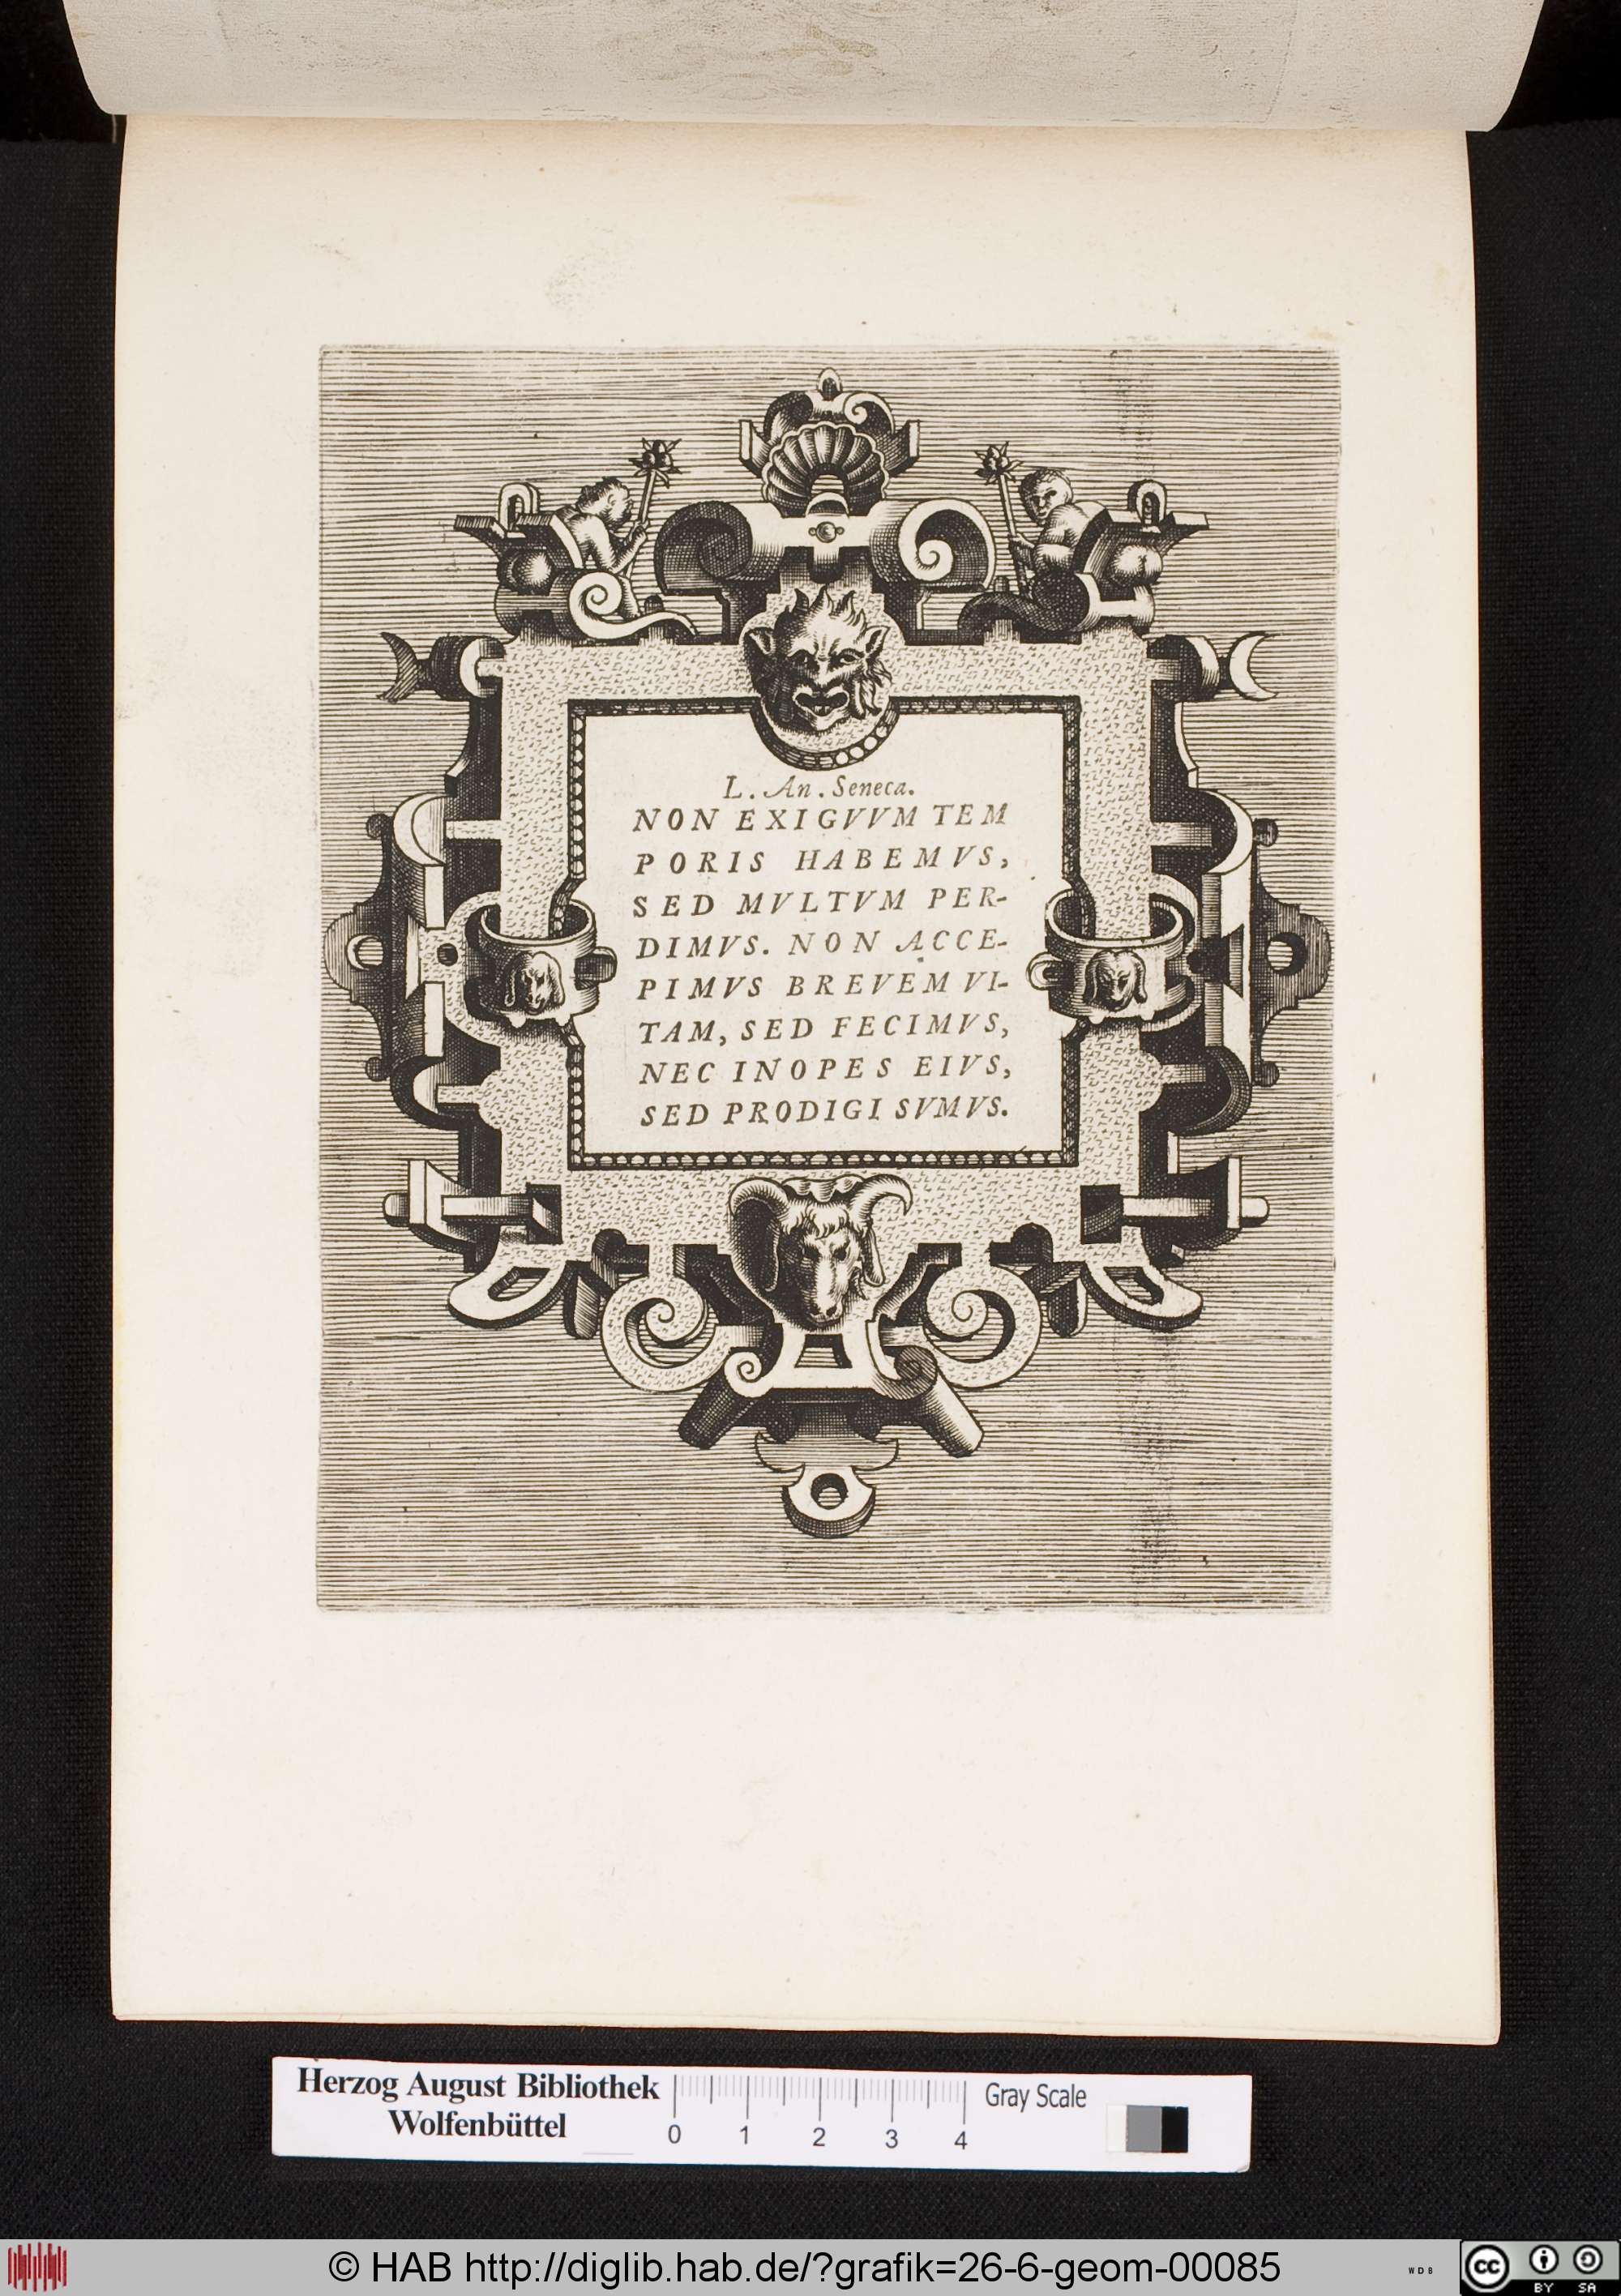 L. An. Seneca.
NON EXIGVVM TEM
PORIS HABEMVS,
SED MVLTVM PER-
DIMVS. NON ACCE-
PIMVS BREVEM VI-
TAM, SED FECIMVS,
NEC INOPES EIVS,
SED PRODIGI SVMVS.
Herzog August Bibliothek
Wolfenbüttel
0 1 2 3 4
Gray Scale
© HAB http://diglib.hab.de/?grafik=26-6-geom-00085
WDB
cc BY SA